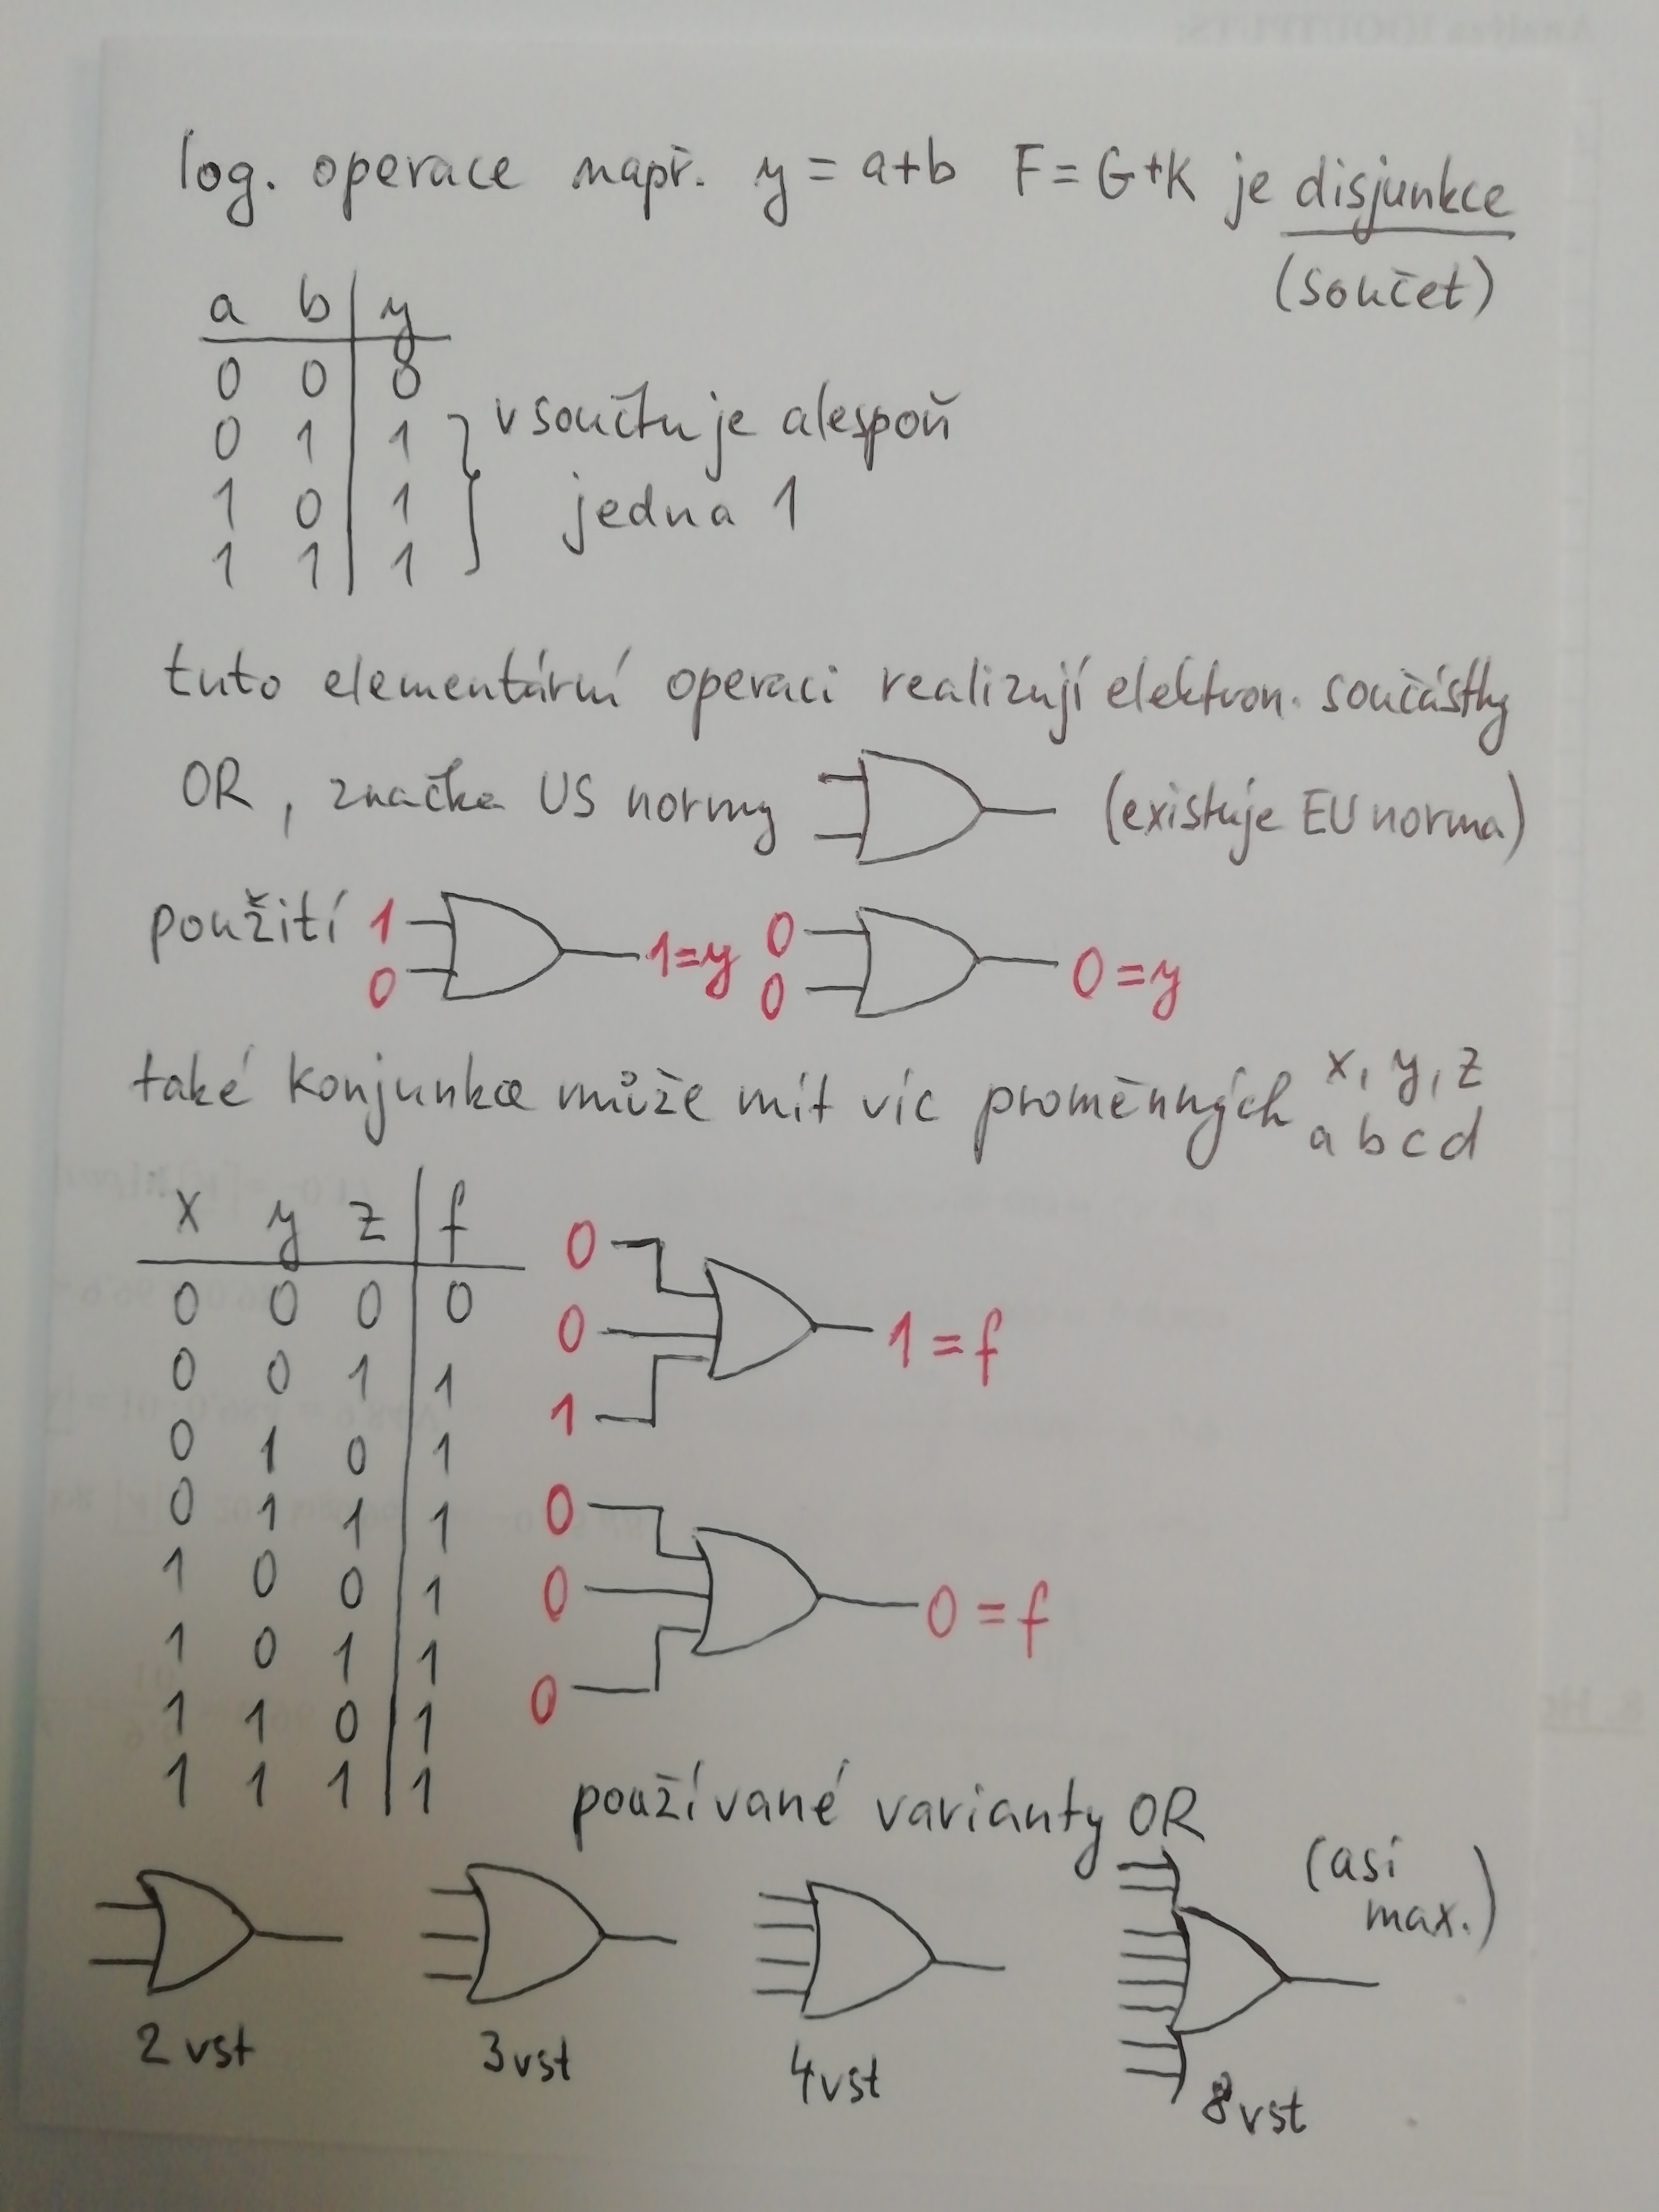 log. operace např. y = a+b F = G+K je disjunkce
(součet)
a b y
0 0 0
0 1 1
1 0 1
1 1 1
v součtu je alespoň
jedna 1
tuto elementární operaci realizují elektron. součástky
OR, značka US normy (existuje EU norma)
použití 1 0 1=y 0 0 0=y
také konjunkce může mít víc proměnných x, y, z
a b c d
x y z f
0 0 0 0
0 0 1 1
0 1 0 1
0 1 1 1
1 0 0 1
1 0 1 1
1 1 0 1
1 1 1 1
0
0
1
1 = f
0
0
0
0 = f
používané varianty OR
(asi
max.)
2 vst 3 vst 4 vst 8 vst